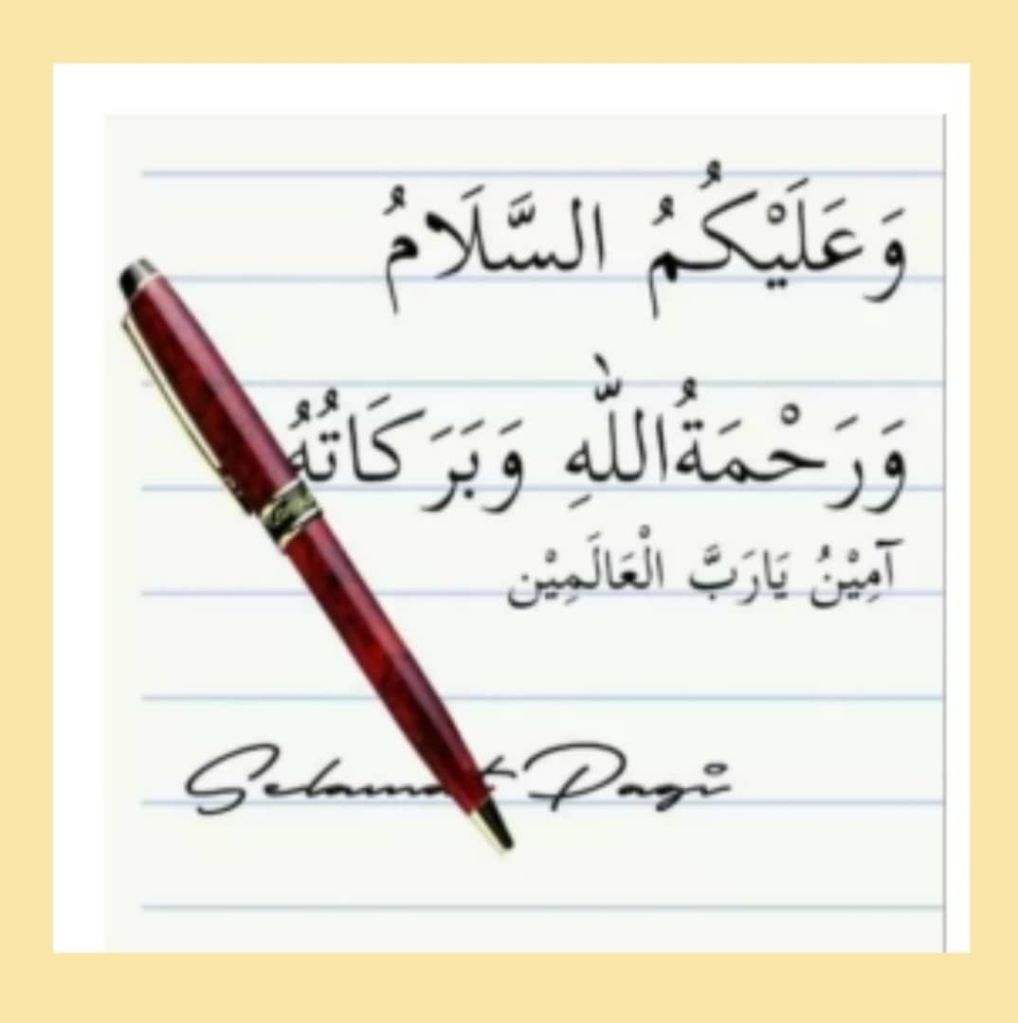 وَعَلَيْكُمُ السَّلَامُ
وَرَحْمَةُاللّٰهِ وَبَرَكَاتُهُ
آمِيْنُ يَارَبَّ الْعَالَمِيْن
Selamat Pagi